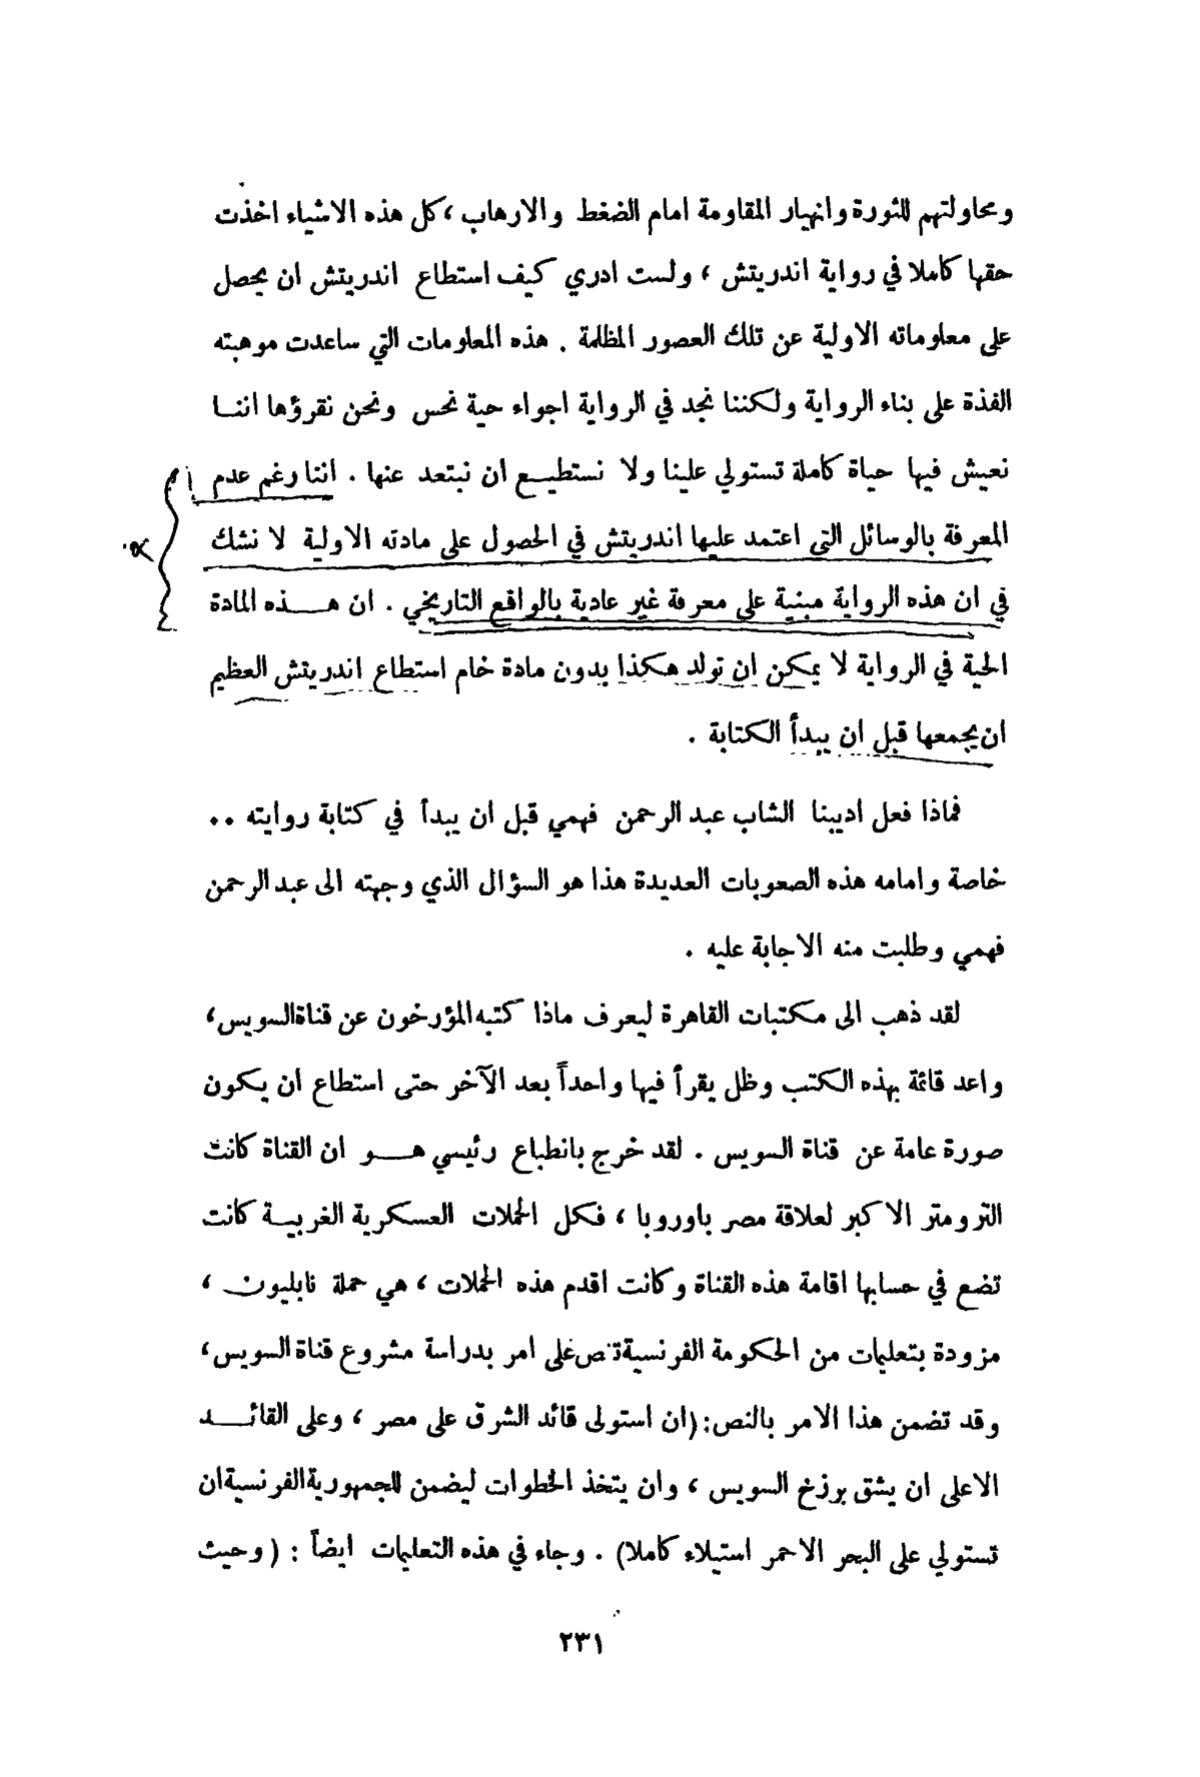 ومحاولتهم للثورة وانهيار المقاومة امام الضغط والارهاب ، كل هذه الاشياء اخذت
حقها كاملا في رواية اندريتش ، ولست ادري كيف استطاع اندريتش ان يحصل
على معلوماته الاولية عن تلك العصور المظلمة . هذه المعلومات التي ساعدت موهبته
الفذة على بناء الرواية ولكننا نجد في الرواية اجواء حية نحس ونحن نقرؤها اننا
نعيش فيها حياة كاملة تستولي علينا ولا نستطيع ان نبتعد عنها . اننا رغم عدم
المعرفة بالوسائل التي اعتمد عليها اندريتش في الحصول على مادته الاولية لا نشك
في ان هذه الرواية مبنية على معرفة غير عادية بالواقع التاريخي . ان هذه المادة
الحية في الرواية لا يمكن ان تولد هكذا بدون مادة خام استطاع اندريتش العظيم
ان يجمعها قبل ان يبدأ الكتابة .
فماذا فعل اديبنا الشاب عبد الرحمن فهمي قبل ان يبدأ في كتابة روايته ..
خاصة وامامه هذه الصعوبات العديدة هذا هو السؤال الذي وجهته الى عبد الرحمن
فهمي وطلبت منه الاجابة عليه .
لقد ذهب الى مكتبات القاهرة ليعرف ماذا كتبه المؤرخون عن قناة السويس،
واعد قائمة بهذه الكتب وظل يقرأ فيها واحداً بعد الآخر حتى استطاع ان يكون
صورة عامة عن قناة السويس . لقد خرج بانطباع رئيسي هو ان القناة كانت
الترومتر الاكبر لعلاقة مصر باوروبا ، فكل الحملات العسكرية الغربية كانت
تضع في حسابها اقامة هذه القناة وكانت اقدم هذه الحملات ، هي حملة نابليون ،
مزودة بتعليمات من الحكومة الفرنسية تنص على امر بدراسة مشروع قناة السويس،
وقد تضمن هذا الامر بالنص: (ان استولى قائد الشرق على مصر ، وعلى القائد
الاعلى ان يشق برزخ السويس ، وان يتخذ الخطوات ليضمن للجمهورية الفرنسية ان
تستولي على البحر الاحمر استيلاء كاملا) . وجاء في هذه التعليمات ايضاً : ( وحيث
٢٣١